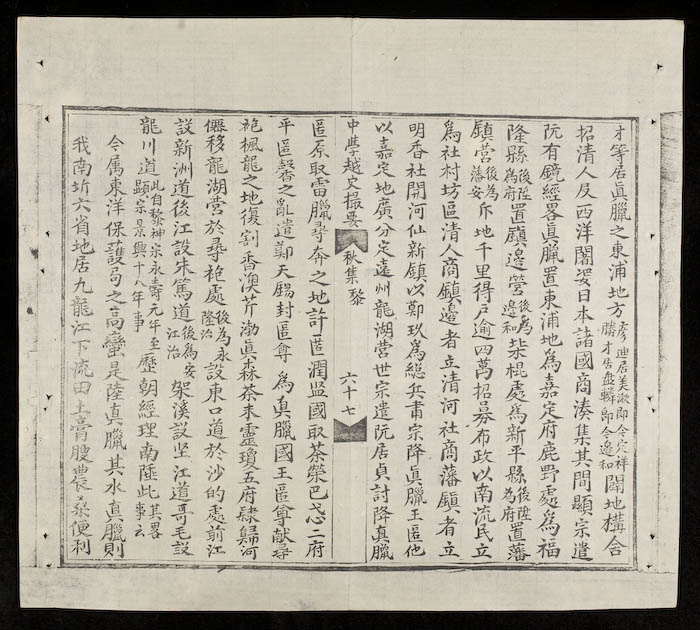 才等居眞臘之東浦地方彥迪居美湫即今定祥勝才居盤轔即今邊和闢地構舍
招清人及西洋闍婆日本諸國商湊集其間顯宗遣
阮有鏡經畧眞臘置東浦地爲嘉定府鹿野處爲福
隆縣後陞爲府置鎭邊營後爲邊和柴棍處爲新平縣後陞爲府置藩
鎭營後爲藩安斥地千里得戶逾四萬招募布政以南流民立
爲社村坊區清人商鎭邊者立清河社商藩鎭者立
明香社開河仙新鎭以鄭玖爲總兵肅宗降眞臘王匿他
以嘉定地廣分定遠州龍湖營世宗遣阮居貞討降眞臘
中學越史撮要 秋集黎 六十七
匿原取雷臘尋奔之地許匿潤監國取茶榮巴忒二府
平匿馨之亂遣鄭天錫封匿尊爲眞臘國王匿尊献尋
袍楓龍之地復割香澳芹渤眞森茶末靈瓊五府肆歸河
僊移龍湖營於尋袍處後爲永隆治設東口道於沙的處前江
設新洲道後江設朱篤道後爲安江治架溪設坚江道哥毛設
龍川道此自黎神宗永壽元年至顯宗景興十八年事歷朝經理南陲此其畧事云
今属東洋保護局之高蠻是陸眞臘其水眞臘則
我南圻六省地居九龍江下流田土膏腴農桑便利